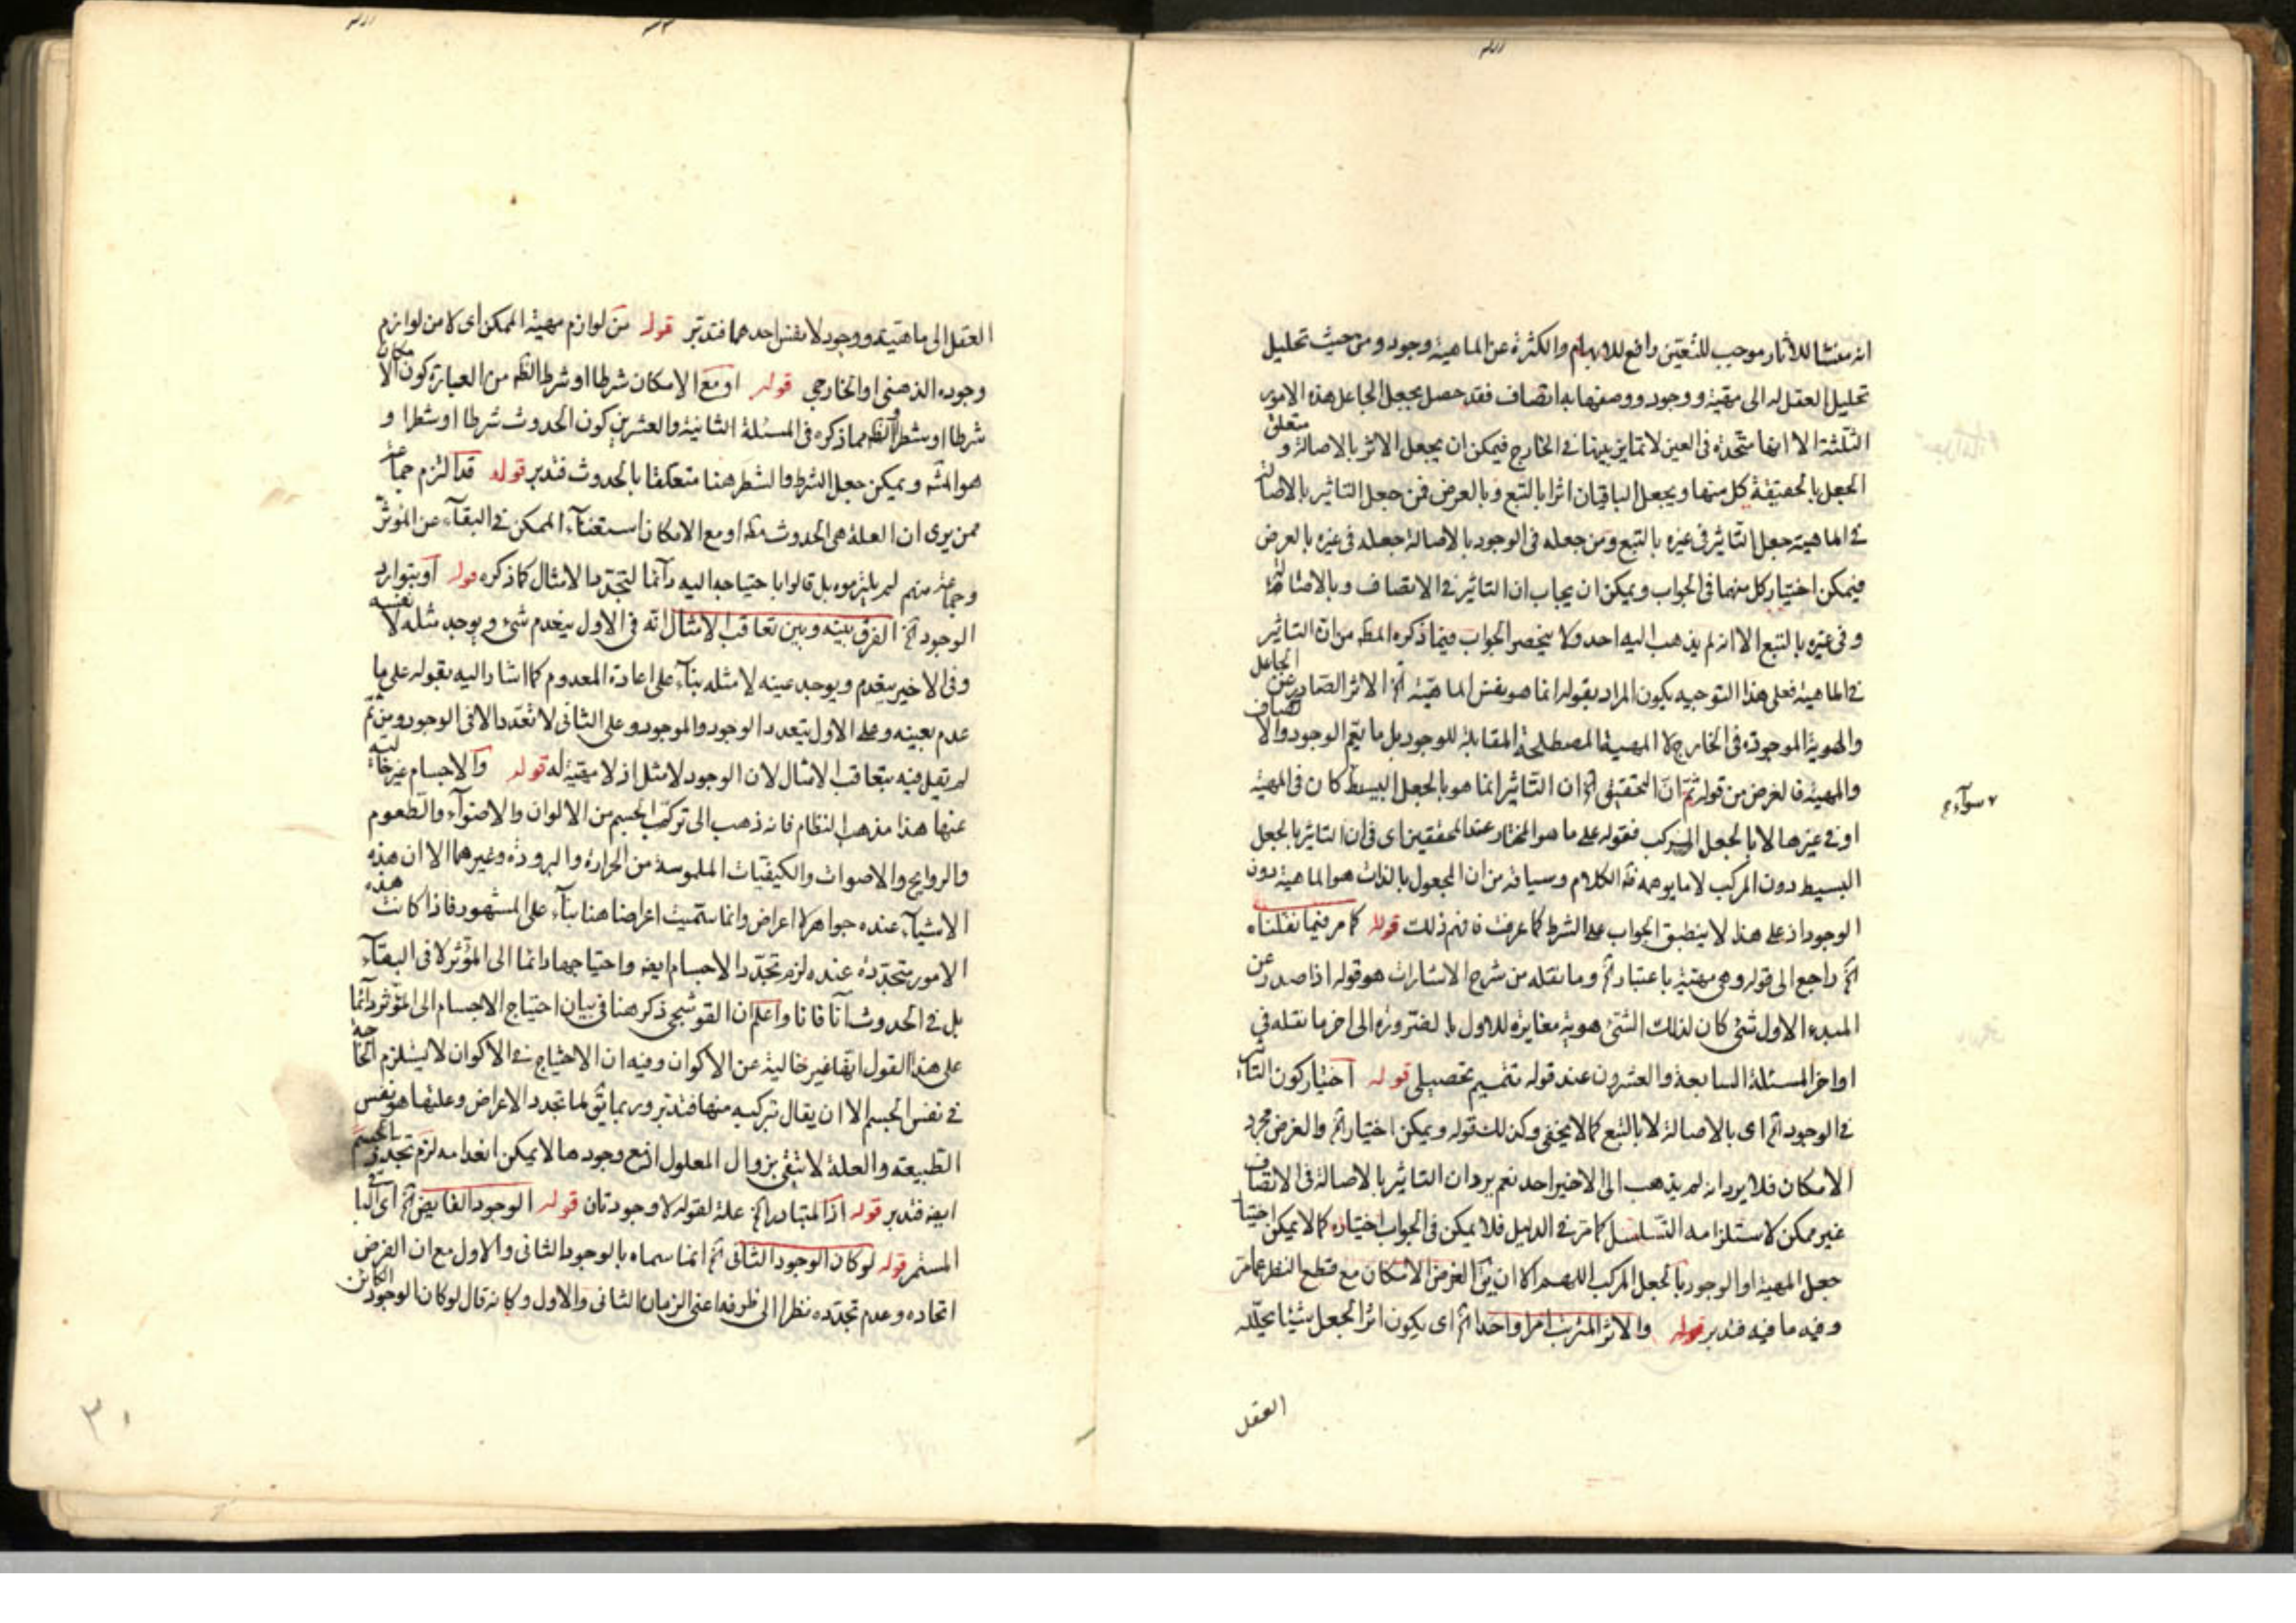 انه منشا للأثار موجب للتعين رافع للابهام والكثرة عن الماهية وجود ومن حيث تحليل
تحليل العقل له الى مهية ووجود ووصفها به اتصاف فقد حصل بجعل الجاعل هذه الامور
الثلثة الا انها متحدة فى العين لا تمايز بينها فى الخارج فيمكن ان يجعل الاثر بالاصالة و متعلق
الجعل بالحقيقة كل منها ويجعل الباقيان اثرا بالتبع وبالعرض فمن جعل التاثير بالاصالة
فى الماهية جعل التاثير فى غيره بالتبع ومن جعله فى الوجود بالاصالة جعله فى غيره بالعرض
فيمكن اختيار كل منهما فى الجواب ويمكن ان يجاب ان التاثير فى الاتصاف وبالاصالة
وفى غيره بالتبع الا انه لم يذهب اليه احد ولا ينحصر الجواب فيما ذكره المص من ان التاثير
فى الماهية فعلى هذا التوجيه يكون المراد بقوله انما هو نفس الماهية اه الاثر الصادر عن الجاعل
والهوية الموجودة فى الخارج لا المهية المصطلحة المقابلة للوجود بل ما يعم الوجود والاتصاف
والمهية فالغرض من قوله ثم ان التحقيق اه ان التاثير انما هو بالجعل البسيط كان فى المهية
سوآء
او فى غيرها لا بالجعل المركب فقوله على ما هو المختار عند المحققين اى فى ان التاثير بالجعل
البسيط دون المركب لا ما يوهمه الكلام وسياقه من ان المجعول بالذات هو الماهية دون
الوجود اذ على هذا لا ينطبق الجواب على الشرط كما عرفت فافهم ذلك قوله كما مر فيما نقلناه
اه راجع الى قوله وهى مهية باعتبار اه وما نقله من شرح الاشارات هو قوله اذا صدر عن
المبدء الاول شئ كان لذلك الشئ هوية مغايرة للاول بالضرورة الى اخر ما نقله فى
اواخر المسئلة السابعة والعشرون عند قوله تتميم تحصيلى قوله اختيار كون التاثير
فى الوجود اه اى بالاصالة لا بالتبع كما لا يخفى وكذلك قوله ويمكن اختيار اه والغرض مجرد
الامكان فلا يرد انه لم يذهب الى الاخير احد نعم يرد ان التاثير بالاصالة فى الاتصاف
غير ممكن لاستلزامه التسلسل كما مر فى الدليل فلا يمكن فى الجواب اختياره كما لا يمكن اختيار
جعل المهية او الوجود بالجعل المركب اللهم الا ان يق الغرض الامكان مع قطع النظر عما مر
وفيه ما فيه فتدبر قوله والاثر المترتب امرا واحدا اه اى يكون اثر الجعل شيئا يحلله
العقل
العقل الى ماهية ووجود لا نفس احدهما فتدبر قوله من لوازم مهية الممكن اى لا من لوازم
وجوده الذهنى او الخارجي قوله او مع الامكان شرطا او شرطا الظه من العبارة كون الامكان
شرطا او شطرا والظه مما ذكره فى المسئلة الثانية والعشرين كون الحدوث شرطا او شطرا و
هو المشه ويمكن جعل الشرط والشطر هنا متعلقا بالحدوث فتدبر قوله قد التزم جماعة
ممن يرى ان العلة هى الحدوث او مع الامكان استغنآء الممكن فى البقآء عن المؤثر
وجماعة منهم لم يلتزموه بل قالوا باحتياجه اليه دآئما لتجدد الامثال كما ذكره قوله او بتوارد
الوجود اه الفرق بينه وبين تعاقب الامثال انه فى الاول ينعدم شئ ويوجد مثله لا نفسه
وفى الاخير ينعدم ويوجد عينه لا مثله بنآء على اعادة المعدوم كما اشار اليه بقوله على ما
عدم بعينه وعلى الاول يتعدد الوجود والموجود وعلى الثانى لا تعدد الا فى الوجود ومن ثم
لم يقل فيه بتعاقب الامثال لان الوجود لا مثل اذ لا مهية له قوله والاجسام غير خالية
عنها هذا مذهب النظام فانه ذهب الى تركب الجسم من الالوان والاضوآء والطعوم
والروايح والاصوات والكيفيات الملموسة من الحرارة والبرودة وغيرهما الا ان هذه
الاشيآء عنده جواهر لا اعراض وانما سميت اعراضا هنا بنآء على المشهور فاذا كانت هذه
الامور متجددة عنده لزم تجدد الاجسام ايضه واحتياجها دائما الى المؤثر لا فى البقآء
بل فى الحدوث آنا فانا واعلم ان القوشجى ذكر هنا فى بيان احتياج الاجسام الى المؤثر دآئما
على هذا القول انها غير خالية عن الاكوان وفيه ان الاحتياج فى الاكوان لا يستلزم الحاجة
فى نفس الجسم الا ان يقال بتركبه منها فتدبر وربما يق لما تجدد الاعراض وعلتها هو نفس
الطبيعة والعلة لا تبقى بزوال المعلول اذ مع وجودها لا يمكن انعدامه لزم تجدد الجسم
ايضه فتدبر قوله اذ المتبادر اه علة لقوله لا وجود ثان قوله الوجود الفايض اه اى الباقى
المستمر قوله لو كان الوجود الثانى اه انما سماه بالوجود الثانى والاول مع ان الفرض
اتحاده وعدم تجدده نظرا الى ظرفه اعنى الزمان الثانى والاول وكانه قال لو كان الوجود الكائن
٣١